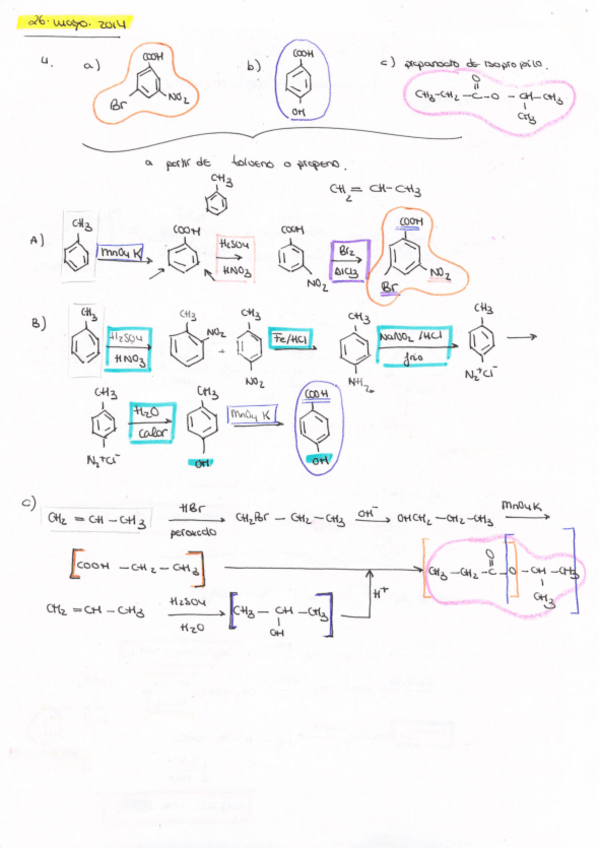 26. mayo. 2014
4. a) COOH Br NO2 b) COOH OH c) propanoato de isopropilo.
CH3-CH2-C-O-CH-CH3
O
CH3
a partir de tolueno o propeno.
CH3 CH2=CH-CH3
A) CH3 MnO4K COOH H2SO4 HNO3 COOH NO2 Br2 AlCl3 COOH NO2 Br
B) CH3 H2SO4 HNO3 CH3 NO2 + CH3 NO2 Fe/HCl CH3 NH2 NaNO2/HCl frío CH3 N2+Cl-
CH3 N2+Cl- H2O calor CH3 OH MnO4K COOH OH
C) CH2=CH-CH3 HBr peróxido CH2Br-CH2-CH3 OH- OHCH2-CH2-CH3 MnO4K
[COOH-CH2-CH3] H+ CH3-CH2-C-O-CH-CH3
O
CH3
CH2=CH-CH3 H2SO4 H2O [CH3-CH-CH3]
OH